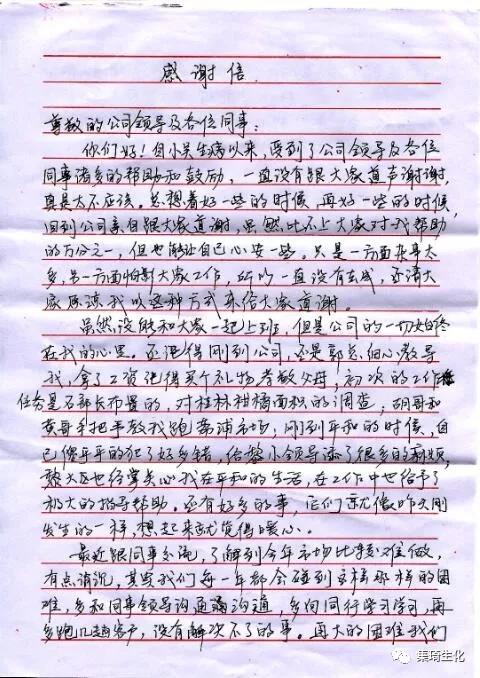 感谢信
尊敬的公司领导及各位同事:
你们好!自小关生病以来,受到了公司领导及各位
同事诸多的帮助和鼓励,一直没有跟大家道声谢谢,
真是大不应该。总想着好一些的时候,再好一些的时候,
回到公司亲自跟大家道谢,虽然比不上大家对我帮助
的万分之一,但也能让自己心安一些。只是一方面杂事太
多,另一方面怕影大家工作,所以一直没有去成,还请大
家原谅我以这种方式来给大家道谢。
虽然没能和大家一起上班,但是公司的一切始终
在我的心里。还记得刚到公司,还是郭总细心教导
我,拿了工资记得买个礼物孝敬父母;初次的工作
任务是石部长布置的,对桂林柑橘面积的调查;胡哥和
黄哥手把手教我跑荔浦市场;刚到平和的时候,自
己傻乎乎的犯了好多错,给黎小领导添了很多的麻烦,
魏大区也经常关心我在平和的生活,在工作中也给予了
极大的指导帮助。还有好多的事,它们就像昨天刚
发生的一样,想起来就觉得暖心。
最近跟同事交流,了解到今年市场比较难做,
有点消沉,其实我们每一年都会碰到这样那样的困
难,多和同事领导沟通沟通,多向同行学习学习,再
多跑几趟客户,没有解决不了的事。再大的困难我们
集琦生化